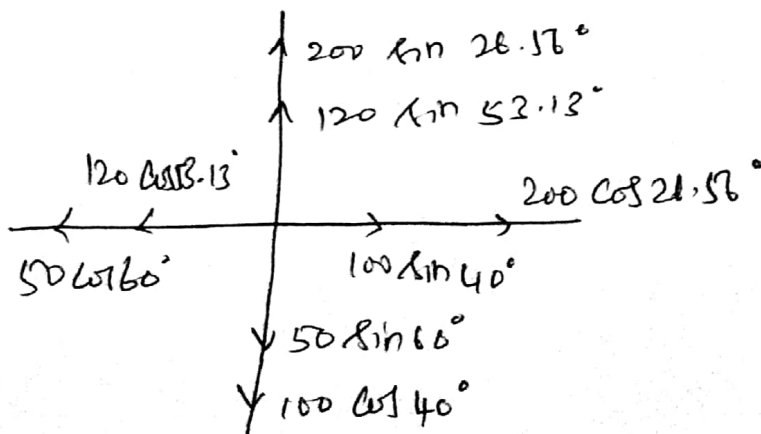 200 sin 26.56°
120 sin 53.13°
120 cos53.13°
200 cos 26.56°
50 cos 60°
100 sin 40°
50 sin 60°
100 cos 40°